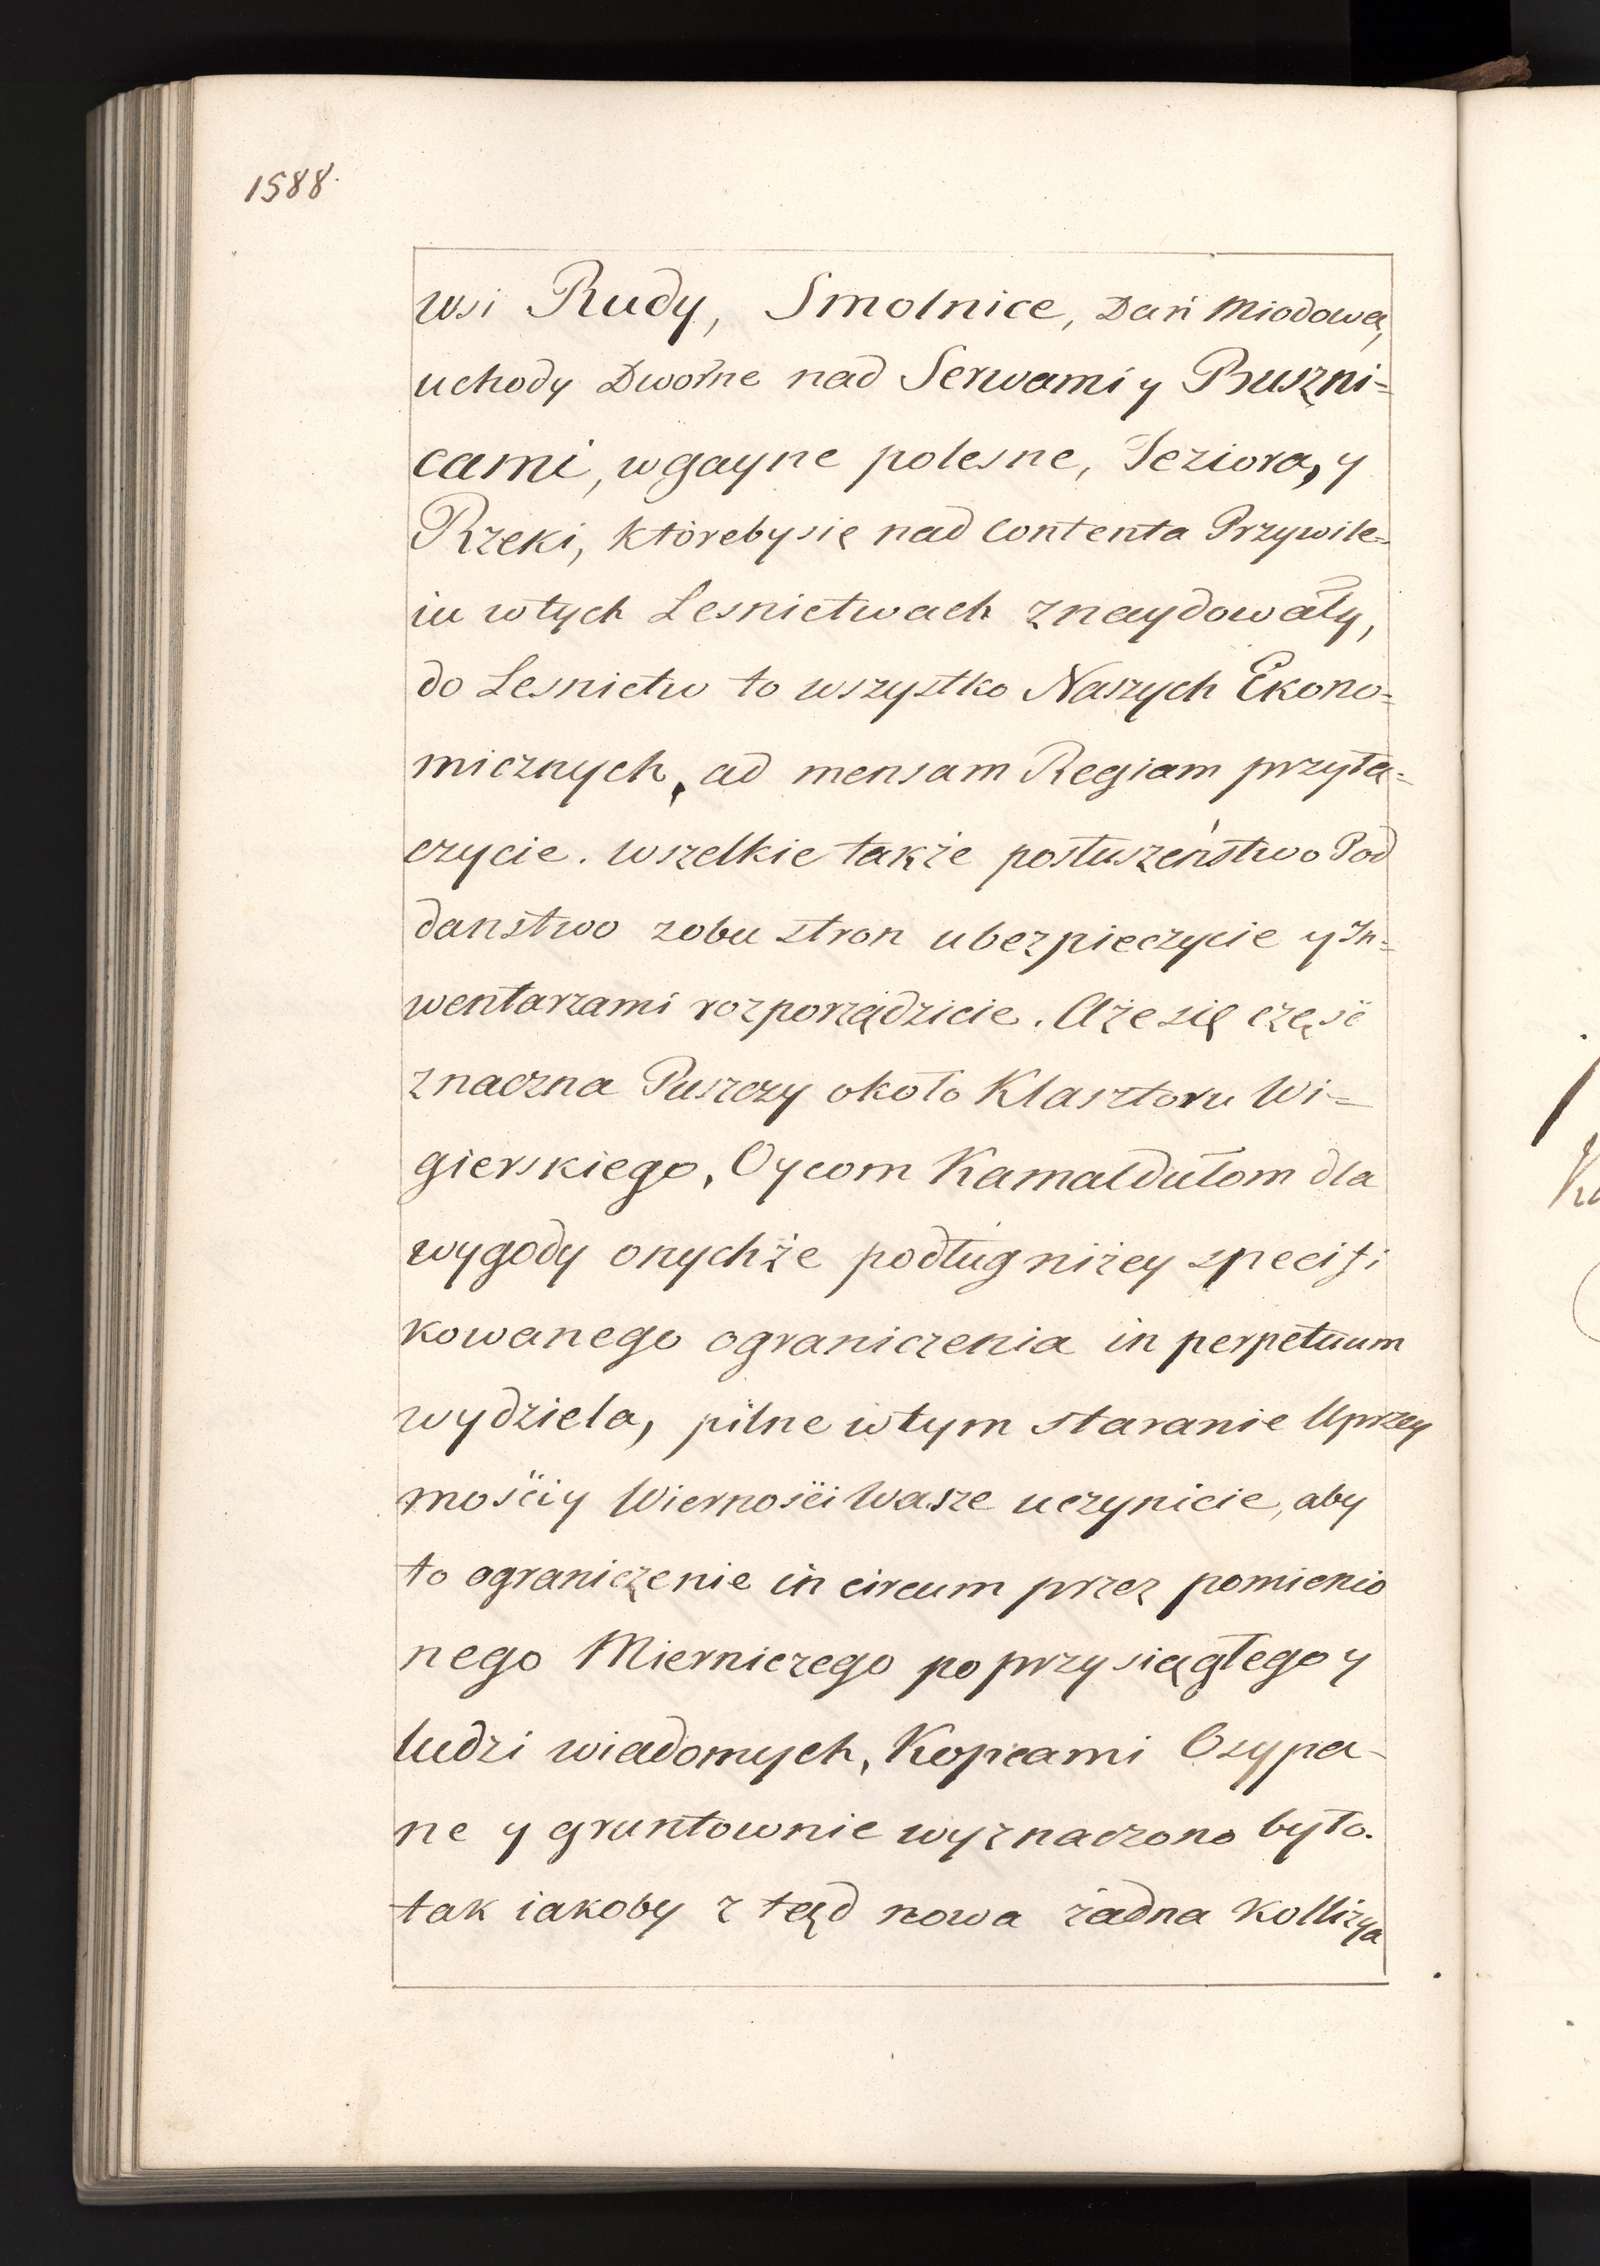 1588.
wsi Rudy, Smolnice, Dań Miodową,
uchody Dworne nad Serwami y Buszni=
cami, wgayne polesne, Jeziora, y
Rzeki, ktòreby się nad contenta Przywile=
iu wtych Lesnictwach znaydowały,
do Lesnictw to wszystko Naszych Ekono=
micznych, ad mensam Regiam przyła=
czycie. wszelkie także posłuszeństwo Pod
danstwo zobu stron ubezpieczycie y In=
wentarzami rozporządzicie. Aże się częśc
znaczna Puszczy około Klasztoru Wi=
gierskiego, Oycom Kamaldułom dla
wygody onychże podług niżey specifi
kowanego ograniczenia in perpetuum
wydziela, pilne wtym staranie Uprzey
mości y Wierności Wasze uczynicie, aby
to ograniczenie in circum przez pomienio
nego Mierniczego poprzysięgłego y
ludzi wiadomych, Kopcami Osypa-
ne y gruntownie wyznaczono było.
tak iakoby z tąd nowa żadna Kollizya